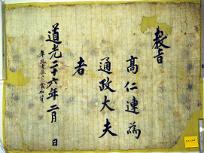 教旨
高仁連為
通政大夫
者
道光二十六年二月 日